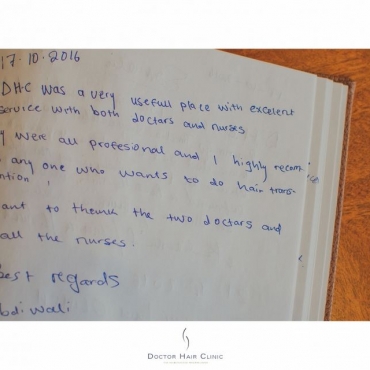 17.10.2016
DHC was a very usefull place with excelent
service with both doctors and nurses
y were all profesional and I highly recom
any one who wants to do hair trans-
ntion !
ant to theunk the two doctors and
all the nurses.
best regards
bdi wali
DOCTOR HAIR CLINIC